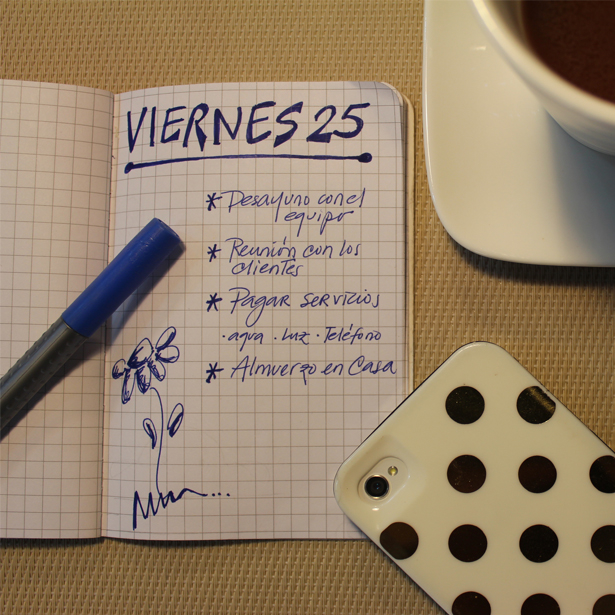 VIERNES 25
* Desayuno con el
equipo
* Reunión con los
clientes
* Pagar servicios
· agua · Luz · Teléfono
* Almuerzo en Casa